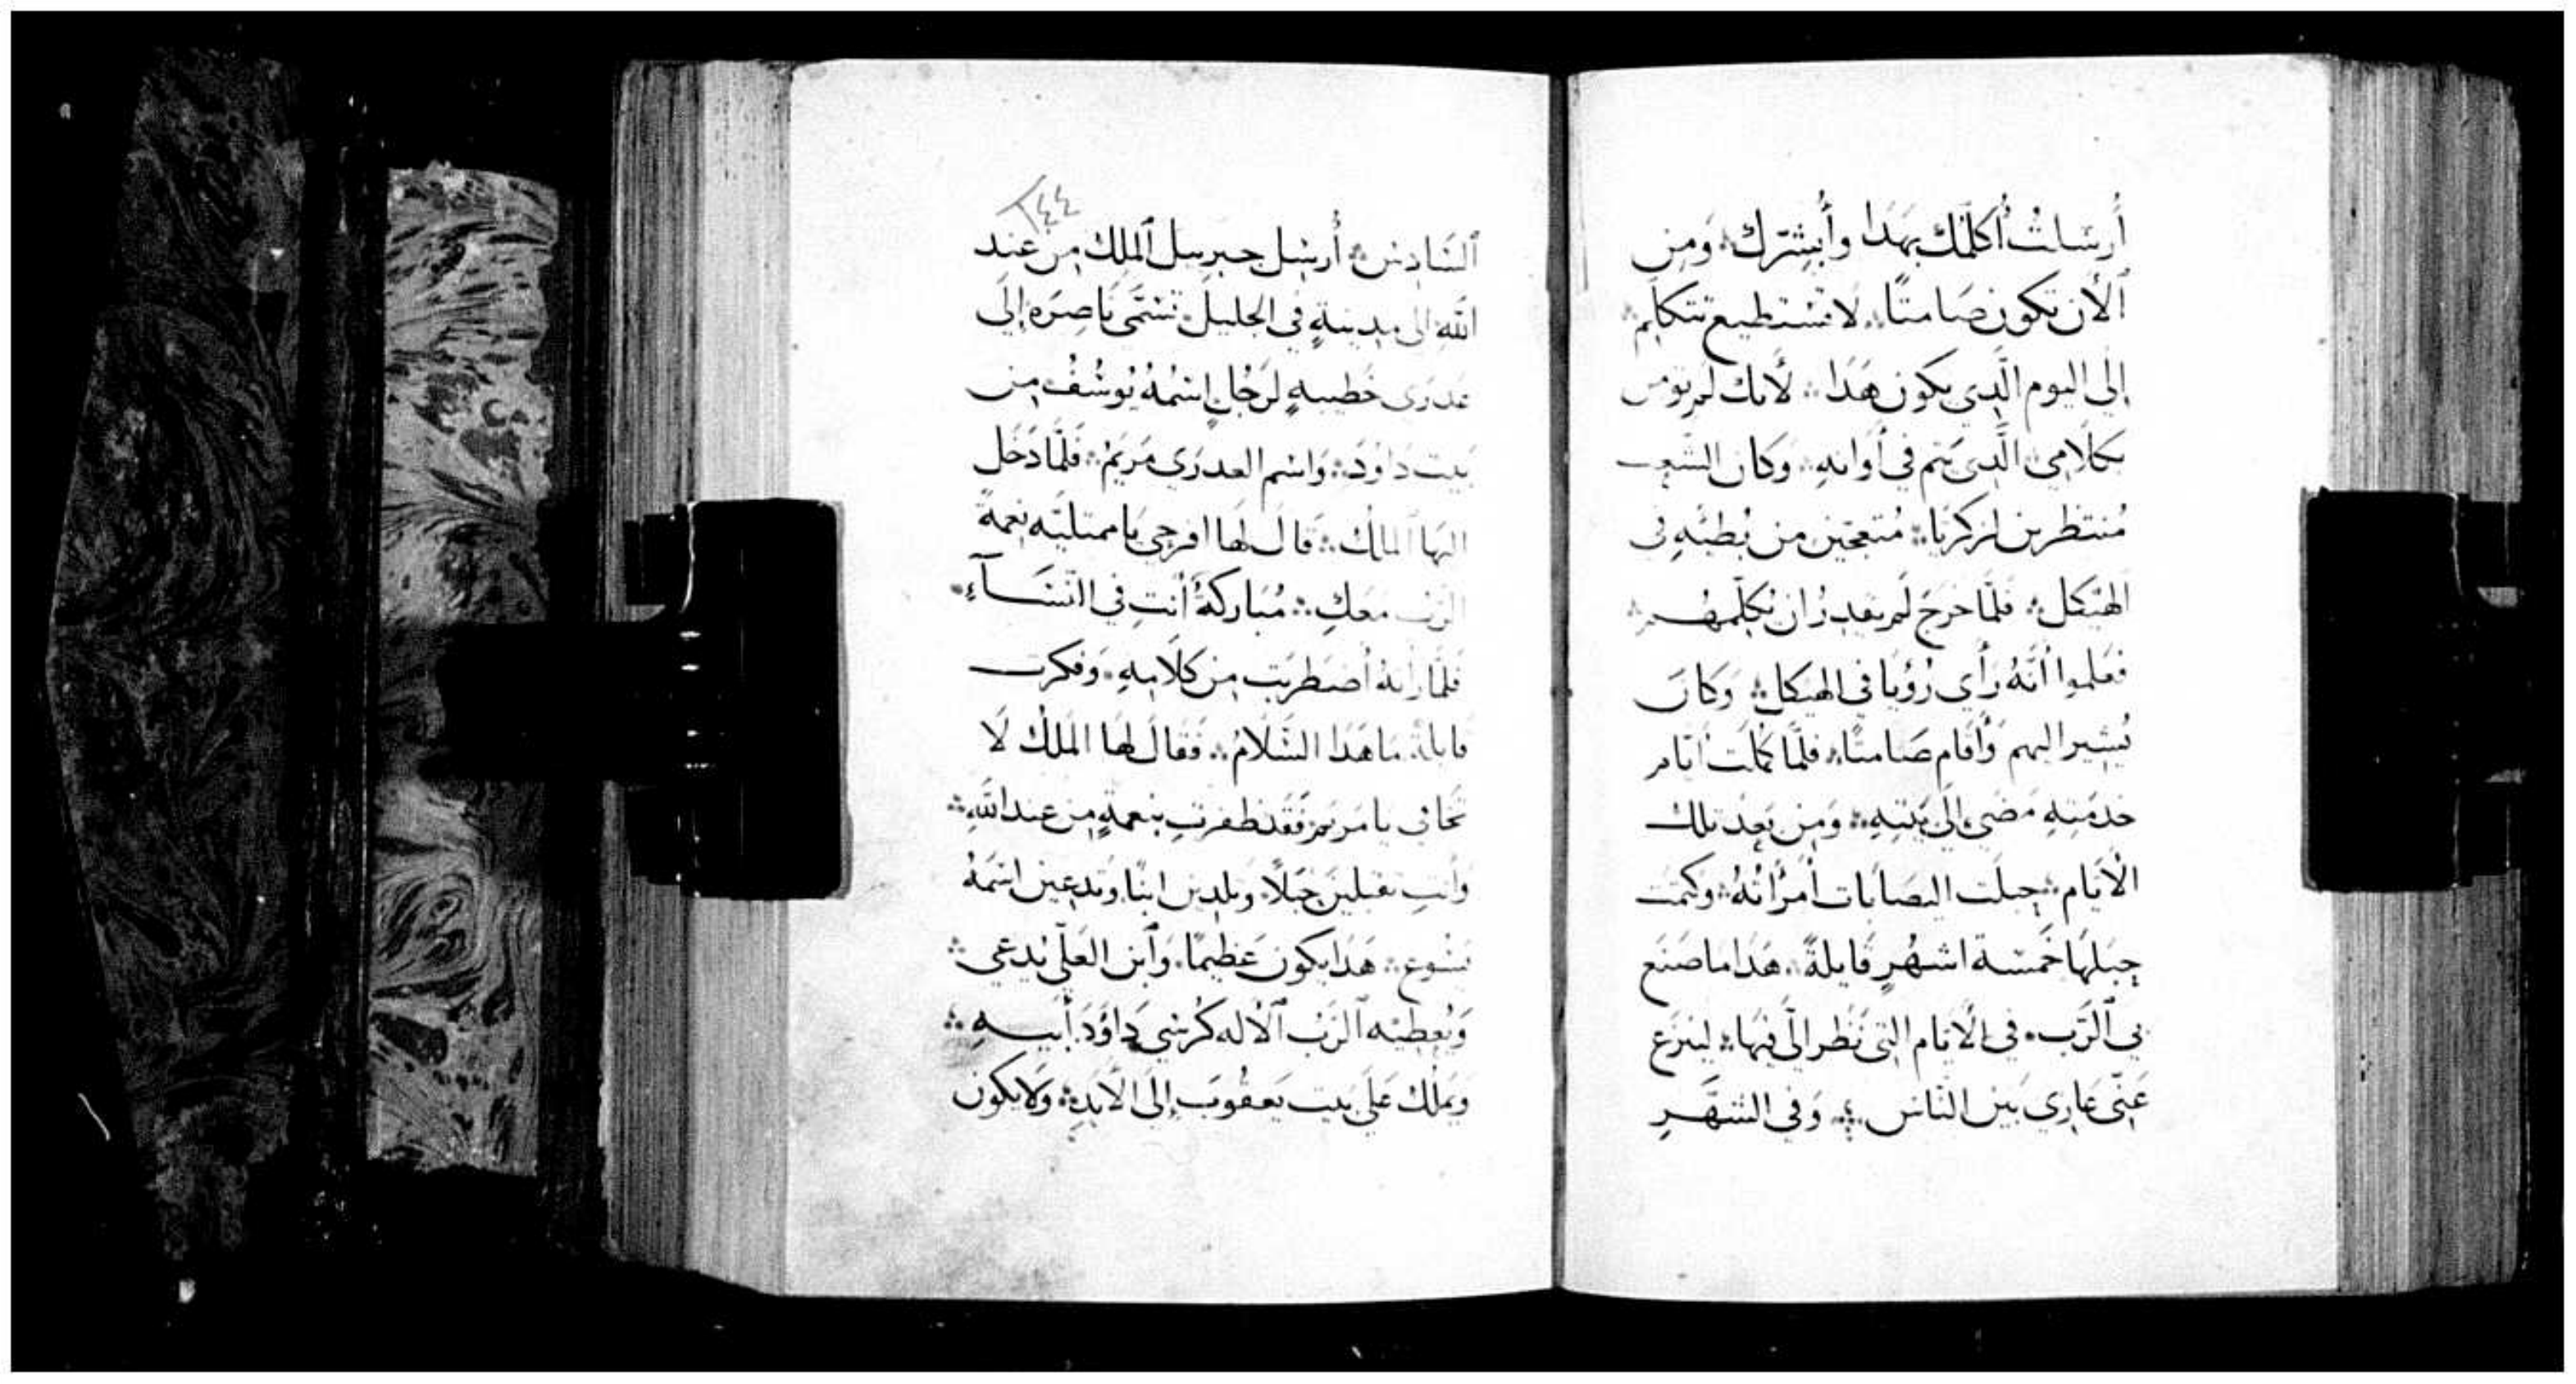 أُرسَلتُ أُكلّمك بهَدَا وأُبشّرك ∴ وَمِن
ٱلأن تكون صَامتًا ∴ لا تستطيع تتكلم ∴
إلى اليوم الَّدِي يكون هَدَا ∴ لأنك لم تومن
بكلامي الَّدِي يَتم في أوانهِ ∴ وَكان الشعب
مُنتظرين لزكريَا ∴ مُتعجّبين من بُطئهِ في
الهَيكل ∴ فلمَّا خرجَ لم يَقدِرُ ان يُكلّمهُم ∴
فعَلموا أنّهُ رَأي رُؤيَا في الهيكل ∴ وَكانَ
يُشير اليهم وَأقام صَامتًا ∴ فلمَّا كملت أيام
خدمَتِهِ مَضي إلى بَيتِهِ ∴ وَمِن بَعد تلك
الأيَام ∴ حبلَت اليصَابَات أمرَاتهُ ∴ وكتمَت
حبَلهَا خَمسَة اشهُرٍ قَايلةً ∴ هَدَا ما صَنع
بي ٱلرَّب ∴ في الأيَام التي نَظر الىَّ فيهَا ∴ لينزع
عَنّي عَارِي بَين النَّاس ∴ وَفي الشهَّرِ
٢٤٤
ٱلسَّادِس ∴ أُرسِل جبريل ٱلملاك مِن عند
اللَّهِ الى مدينةٍ في الجليل تسَمَّي نَاصِرَه إلَى
عدرَى خَطيبهٍ لرَجُلٍ اسْمُهُ يُوسُفُ مِن
بَيت دَاوُدَ ∴ وَاسْم العدرَى مَريَم ∴ فَلمَّا دَخَل
اليهَا ٱلملاك ∴ قَالَ لهَا افرحِي يَا ممتليّه نِعمةً
الرَّب معَكِ ∴ مُبَاركَةٌ أنتِ في النّسَآءِ ∴
فلمَّا رأتهُ أضطرَبَت مِن كلَامِهِ ∴ وَفكرت
قايلةً مَا هَدا السَّلَامُ ∴ فَقَالَ لهَا المَلَاكُ لَا
تَخافي يا مَريَم فَقَد ظفرتِ بنعمةٍ مِن عند اللَّهِ ∴
وَأنتِ تقبلين حَبَلًا وَتلدِين ابنًا وتدعين اسمَهُ
يَسُوع ∴ هَدا يكون عَظيمًا وَٱبن العَليّ يُدعَي ∴
وَيُعطيْه ٱلرَبُ ٱلأله كُرسي دَاوُدَ أبيهِ ∴
وَيَملك عَلَي بَيت يَعقُوبَ إلَى الأَبَدِ ∴ وَلَا يكون